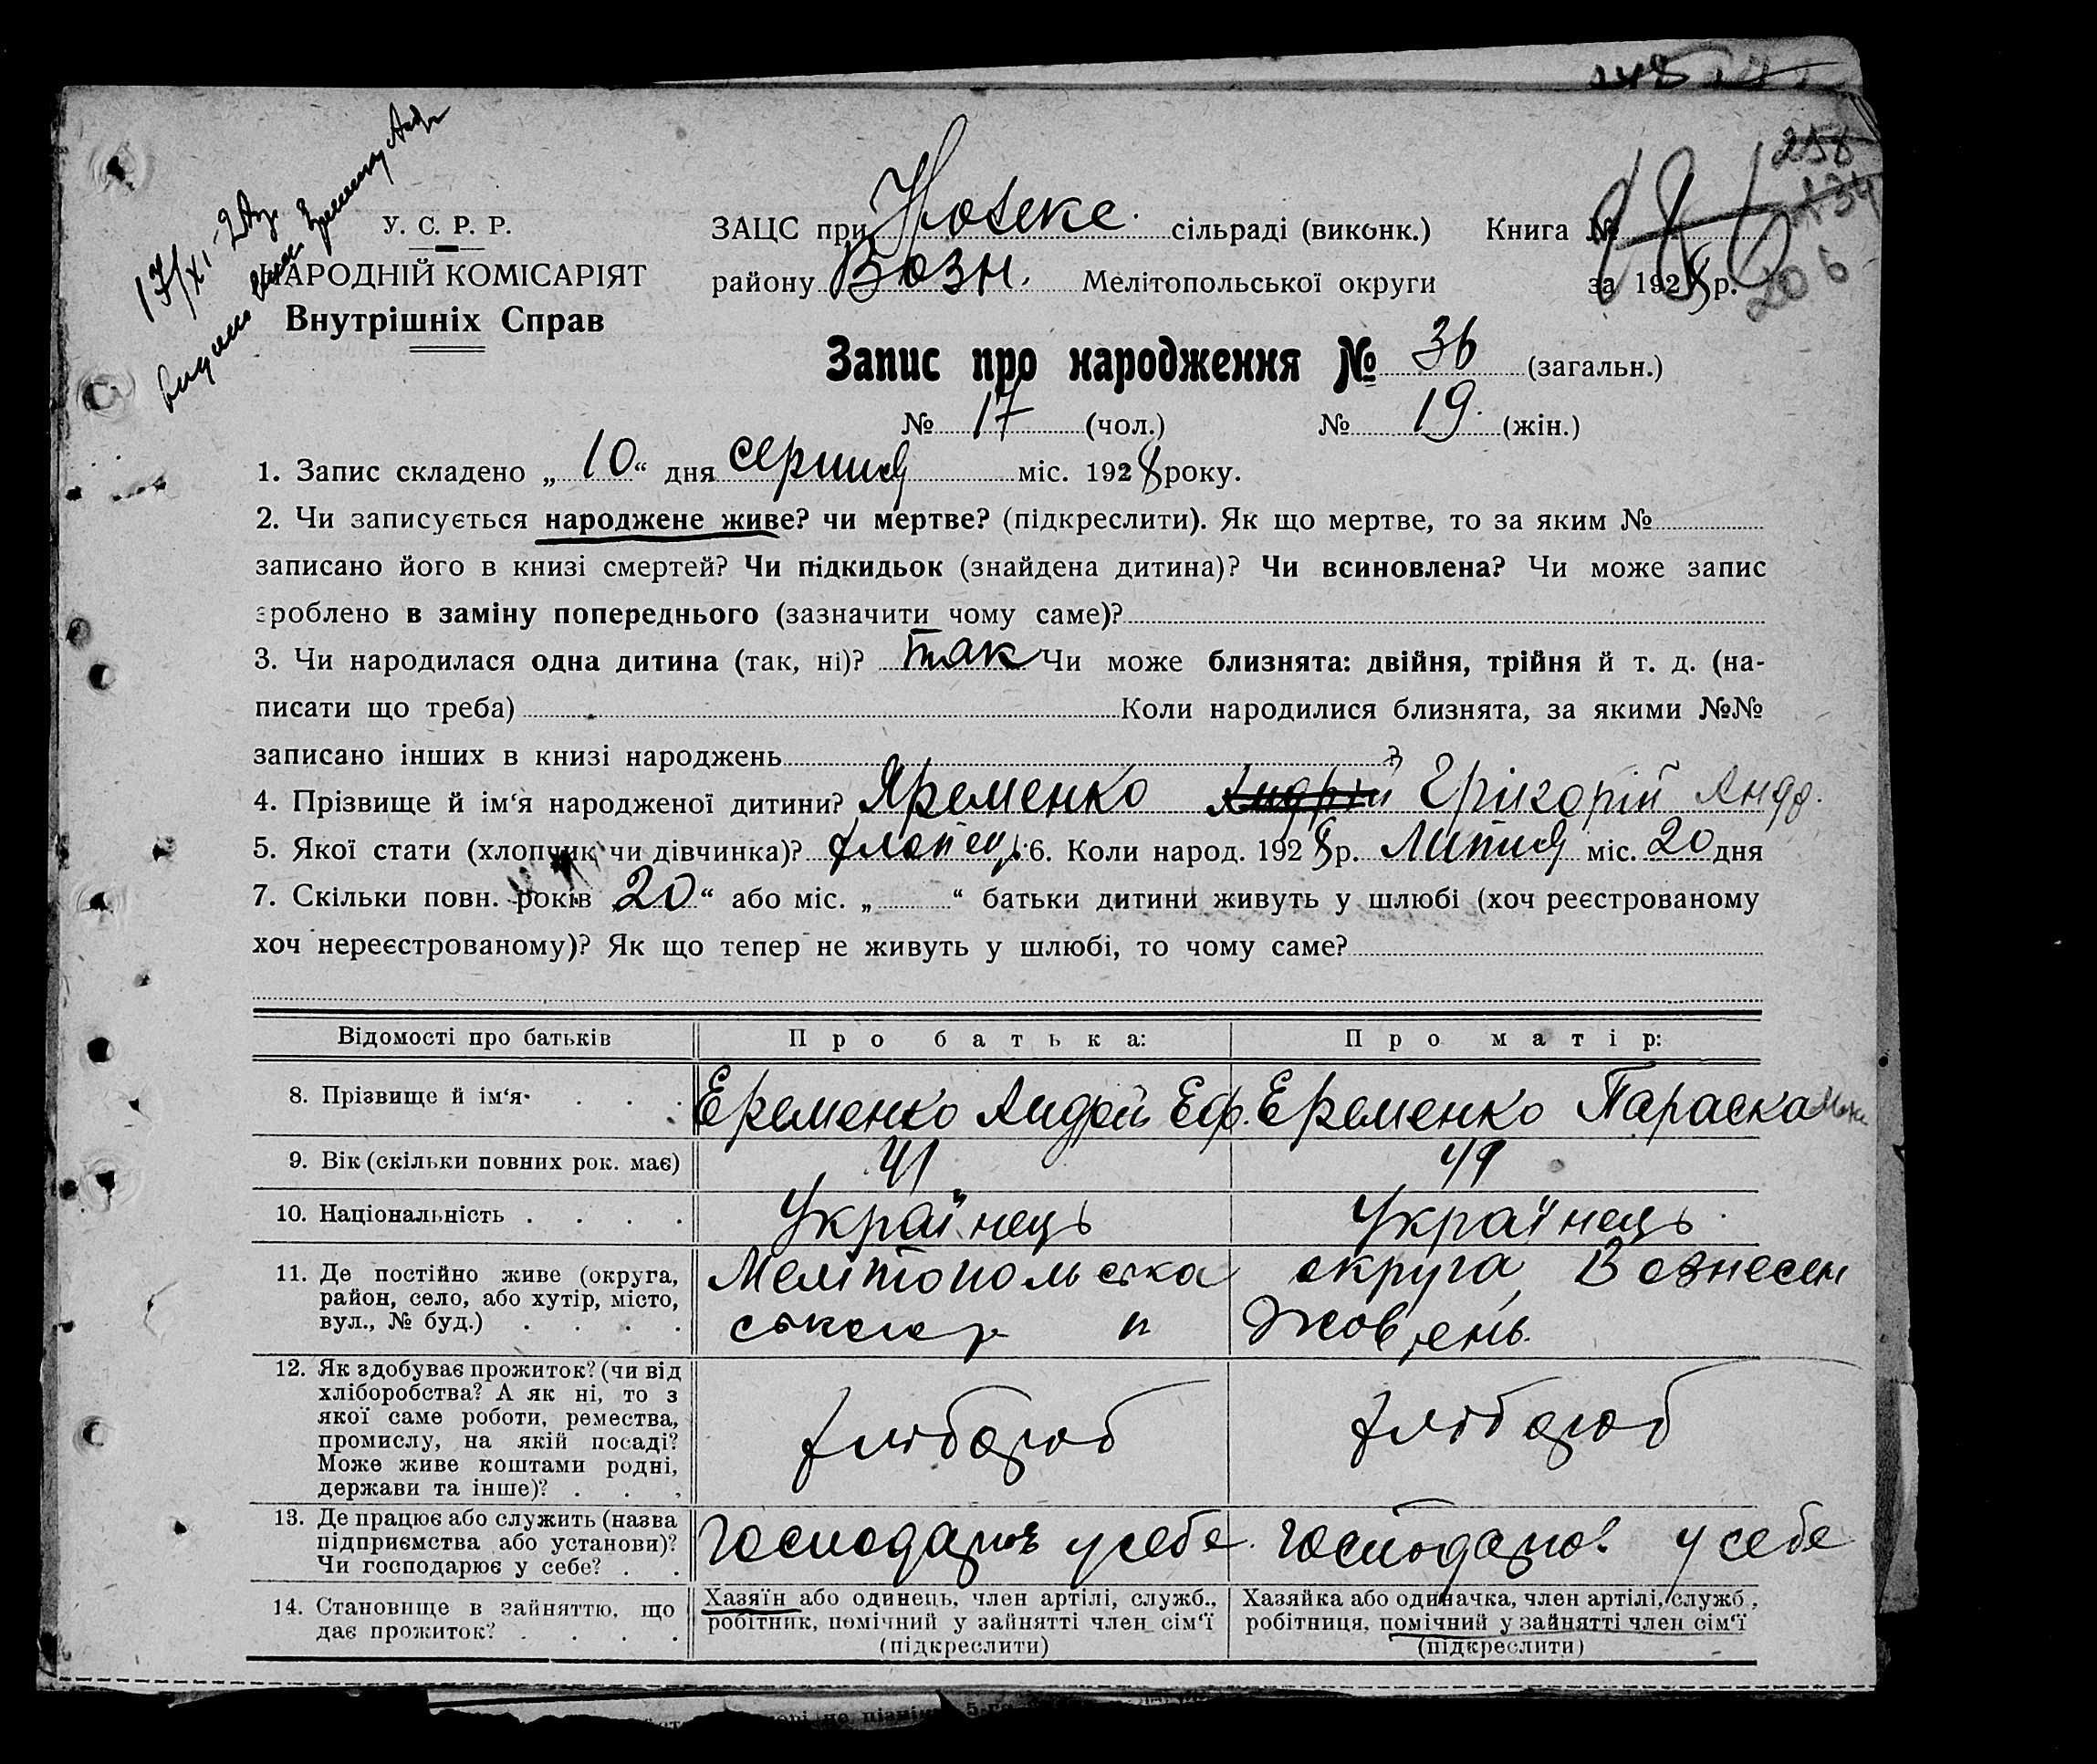 258
134
206
17/XI-
У. С. Р. Р.
НАРОДНІЙ КОМІСАРІЯТ
Внутрішніх Справ
ЗАЦС при сільраді (виконк.) Книга №
району Возн. Мелітопольської округи за 1928 р.
Запис про народження № 36 (загальн.)
№ 17 (чол.) № 19. (жін.)
1. Запис складено „ 10 “ дня серпня міс. 1928 року.
2. Чи записується народжене живе? чи мертве? (підкреслити). Як що мертве, то за яким №
записано його в книзі смертей? Чи підкидьок (знайдена дитина)? Чи всиновлена? Чи може запис
зроблено в заміну попереднього (зазначити чому саме)?
3. Чи народилася одна дитина (так, ні)? так Чи може близнята: двійня, трійня й т. д. (на-
писати що треба) Коли народилися близнята, за якими №№
записано інших в книзі народжень ?
4. Прізвище й ім‘я народженої дитини? Яременко Андрій Грігорій Андр.
5. Якої стати (хлопчик чи дівчинка)? хлопець 6. Коли народ. 1928 р. Липня міс. 20 дня
7. Скільки повн. років „ 20 “ або міс. „ “ батьки дитини живуть у шлюбі (хоч реєстрованому
хоч нереєстрованому)? Як що тепер не живуть у шлюбі, то чому саме?
Відомості про батьків Про батька: Про матір:
8. Прізвище й ім‘я Еременко Андрій Еф. Еременко Параска
9. Вік (скільки повних рок. має) 41 49
10. Національність Українець Українець
11. Де постійно живе (округа, район, село, або хутір, місто, вул., № буд.) Мелітопольська округа Вознесен
Жовтень
12. Як здобуває прожиток? (чи від хліборобства? А як ні, то з якої саме роботи, ремества, промислу, на якій посаді? Може живе коштами родні, держави та інше)? хлібороб хлібороб
13. Де працює або служить (назва підприємства або установи)? Чи господарює у себе? господарює у себе. господарює у себе
14. Становище в зайняттю, що дає прожиток? Хазяїн або одинець, член артілі, служб., робітник, помічний у зайнятті член сім‘ї (підкреслити) Хазяйка або одиначка, член артілі, служб., робітниця, помічний у зайнятті член сім‘ї (підкреслити)